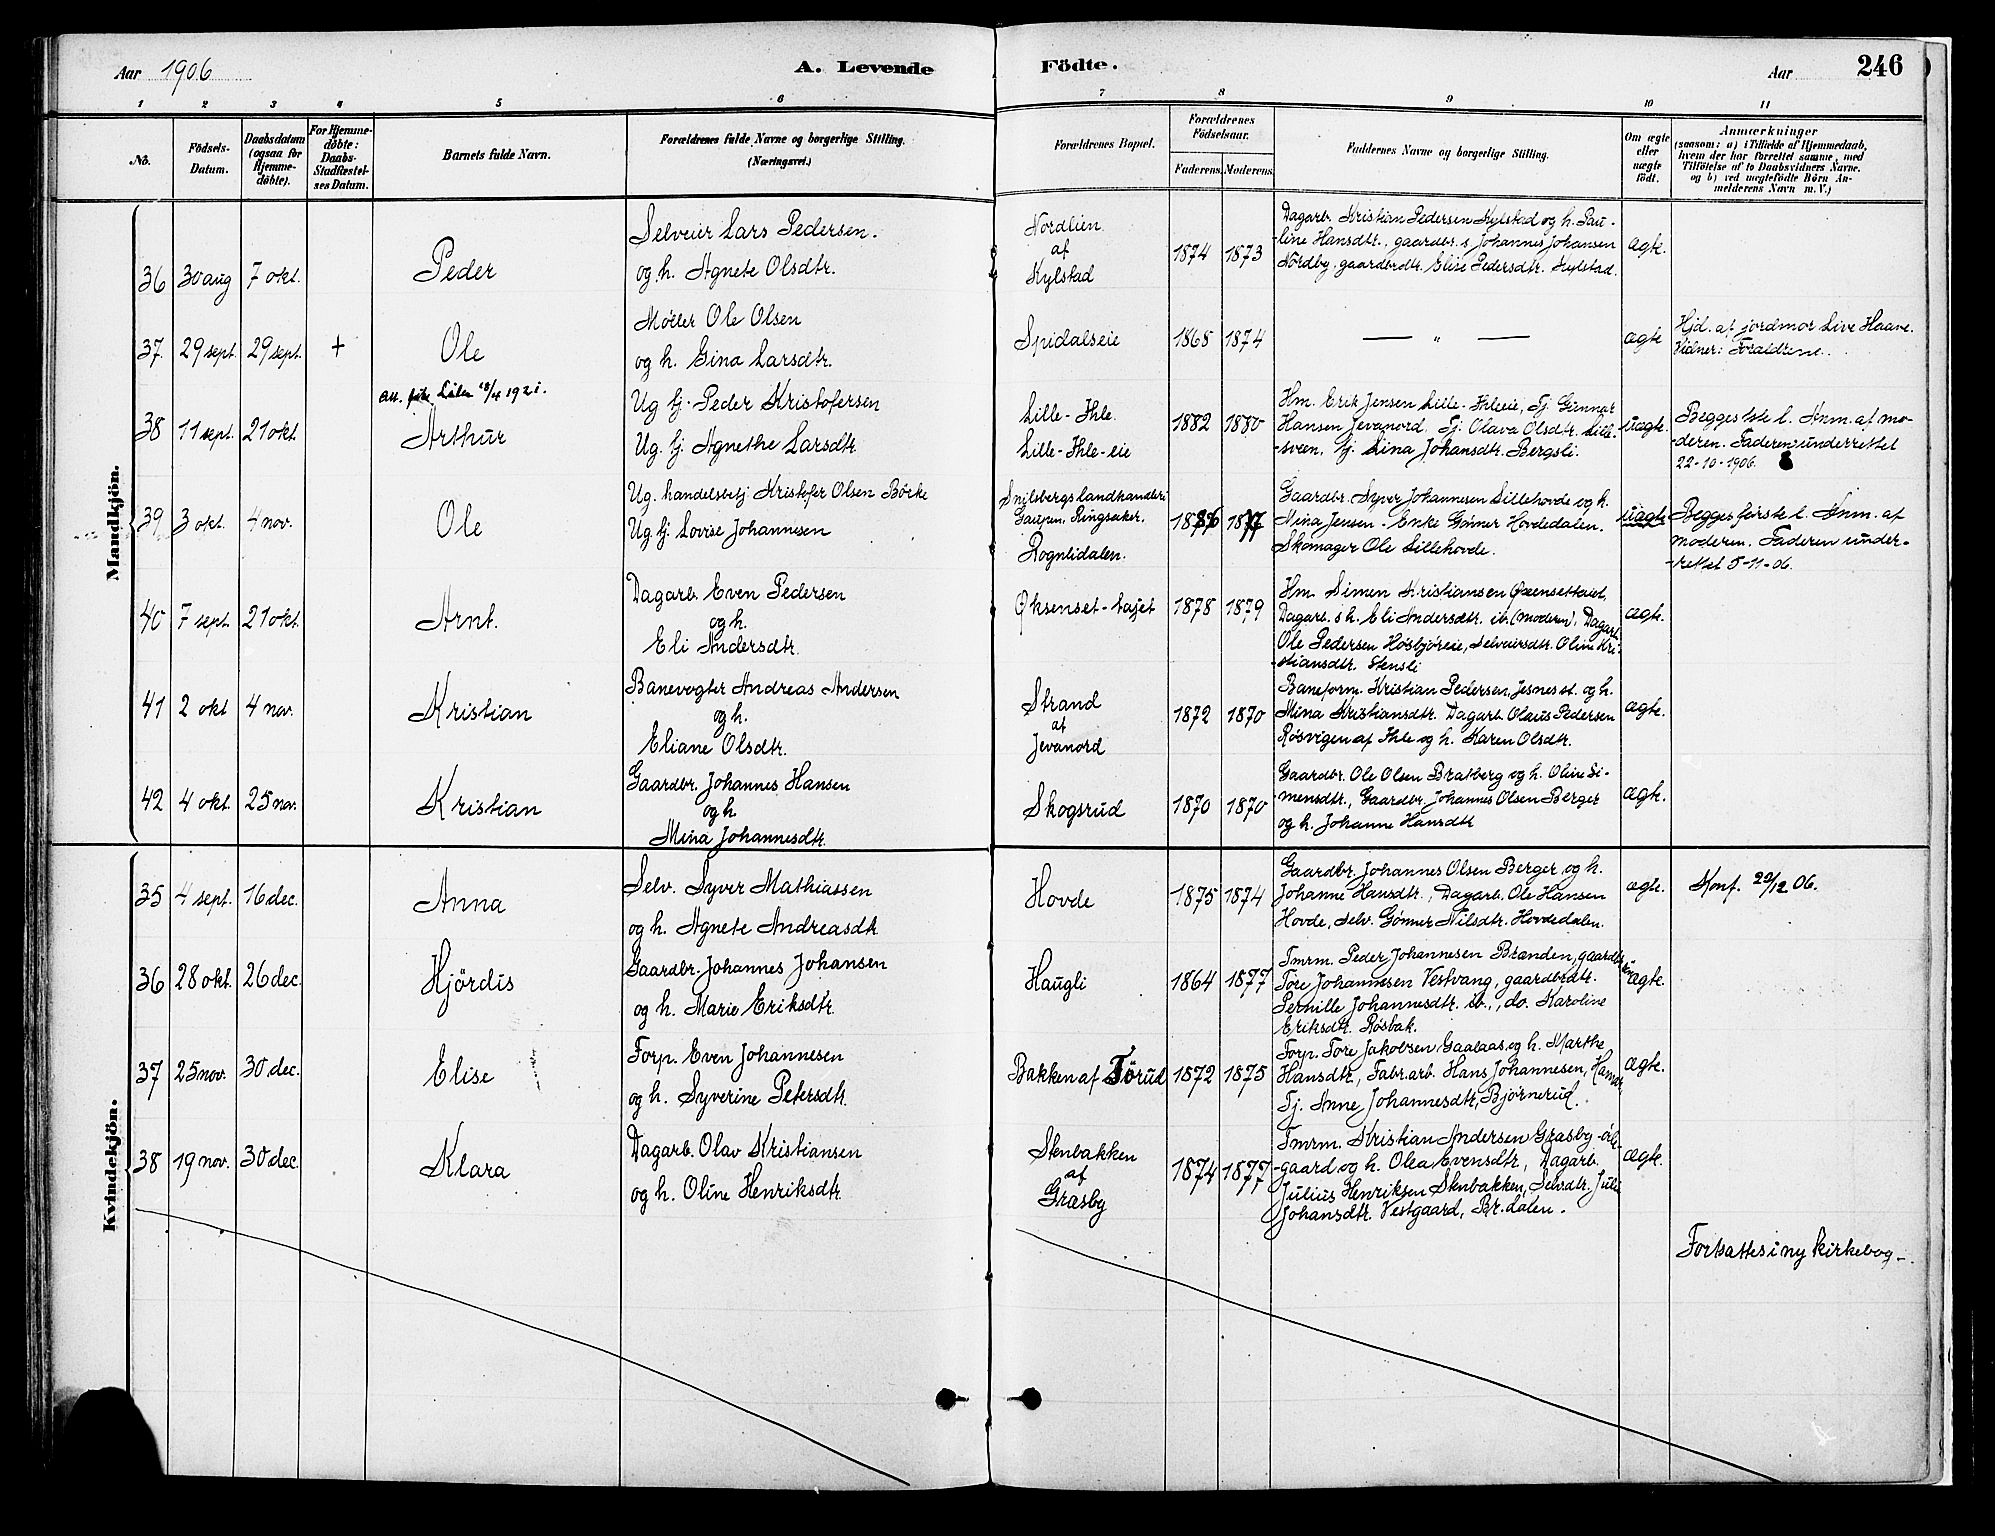 Aar 1906
A. Levende
Födte.
Aar
246
1 2 3 4 5 6 7 8 9 10 11
No.
Födsels-
Datum.
Daabsdatum
(ogsaa for
Hjemme-
döbte).
For Hjemme-
döbte:
Daabs-
Stadfæstel-
ses Datum.
Barnets fulde Navn.
Forældrenes fulde Navne og borgerlige Stilling.
(Næringsvei.)
Forældrenes Bopæl.
Forældrenes
Födselsaar.
Faderens. Moderens.
Faddernes Navne og borgerlige Stilling.
Om ægte
eller
uægte
födt.
Anmærkninger
(saasom: a) i Tilfælde af Hjemmedaab,
hvem der har forrettet samme, med
Tilföielse af to Daabsvidners Navne.
og b) ved uægtefödte Börn An-
melderens Navn m. V.)
Mandkjön.
36 30 aug 7 okt. Peder
Selveier Lars Pedersen.
og h. Agnete Olsdtr.
Nordlien
af
Kylstad
1874 1873
Dagarb. Kristian Pedersen Kylstad og h. Pau-
-line Hansdtr., gaardbr. s Johannes Johansen
Nordby, gaardbrdtr. Elise Pedersdtr. Kylstad.
ægte.
37. 29 sept. 29 sept. + Ole
Møller Ole Olsen
og h. Gina Larsdtr.
Spidalseie
1865 1874
— " —
ægte
Hjd. af jordmor Live Haave.
Vidner: Forældrene.
att. 18/4 1921.
38 11 sept. 21 okt. Arthur
Ug. tj. Peder Kristofersen
Ug. tj. Agnethe Larsdtr.
Lille-Ihle.
Lille-Ihle-eie
1882 1880
Hm. Erik Jensen Lille-Ihleeie, Tj. Gunnar
Hansen Jevanord. Tj. Olava Olsdtr. Lille-
-sveen, tj. Lina Johansdtr. Bergsli.
uægte.
Begges 1ste l. Anm. af mo-
-deren. Faderen underrettet
22-10-1906.
39 3 okt. 4 nov. Ole
Ug. handelsbetj. Kristofer Olsen Börke
Ug. tj. Lovise Johannesen
Snilsbergs landhandleri
Gaupen, Ringsaker.
Rognlidalen.
1886 1877
Gaardbr. Syver Johannesen Lillehovde og h.
Nina Jensen. Enke Gönner Hovdedalen.
Skomager Ole Lillehovde.
uægte
Begges første l. Anm. af
moderen. Faderen under-
-rettet 5-11-06.
40 7 sept. 21 okt. Arnt.
Dagarb. Even Pedersen
og h.
Eli Andersdtr.
Øksenset-tajet
1878 1879
Hm. Simen Kristiansen Øxensettaiet,
Dagarb. s h. Eli Andersdtr. ib. (moderen), Dagarb.
Ole Pedersen Høsbjöreie, Selveiersdtr. Oline Kri-
-stiansdtr. Stensli
ægte.
41 2 okt 4 nov. Kristian
Banevogter Andreas Andersen
og h.
Eliane Olsdtr.
Strand
af
Jevanord
1872 1870
Baneform. Kristian Pedersen, Jesnes st. og h.
Mina Kristiansdtr. Dagarb. Olaus Pedersen
Røsvigen af Ihle og h. Karen Olsdtr.
ægte.
42 4 okt. 25 nov. Kristian
Gaardbr. Johannes Hansen
og h.
Mina Johannesdtr.
Skogsrud
1870 1870
Gaardbr. Ole Olsen Bratberg og h. Oline Si-
-mensdtr., Gaardbr. Johannes Olsen Berger
og h. Johanne Hansdtr
ægte.
Kvindekjön.
35 4 sept. 16 dec. Anna
Selv. Syver Mathiassen
og h. Agnete Andreasdtr.
Hovde
1875 1874
Gaardbr. Johannes Olsen Berger og h.
Johanne Hansdtr., Dagarb. Ole Hansen
Hovde, selv. Gönner Nilsdtr. Hovdedalen.
ægte.
Konf. 22/12 06.
36 28 okt. 26 dec. Hjördis
Gaardbr. Johannes Johansen
og h. Marie Eriksdtr.
Haugli
1864 1877
Tmrm. Peder Johannesen Brænden, gaardbr
Tore Johannesen Vestvang, gaardbrdtr.
Pernille Johannesdtr. ib., do. Karoline
Eriksdtr. Røsbak.
ægte.
37 25 nov. 30 dec. Elise
Forp. Even Johannesen
og h. Syverine Petersdtr.
Bakken af Törud
1872 1875
Forp. Tore Jakobsen Gaalaas og h. Marthe
Hansdtr., Fabr.arb. Hans Johannesen, Hamar,
Tj. Anne Johannesdtr, Bjørnerud.
ægte.
38 19 nov. 30 dec. Klara
Dagarb. Olav Kristiansen
og h. Oline Henriksdtr.
Stenbakken
af
Græsby
1874 1877
Tmrm. Kristian Andersen Græsby-öde-
-gaard og h. Olea Evensdtr, Dagarb.
Julius Henriksen Stenbakken, Selvdtr. Julie
Johansdtr. Vestgaard, Br.dalen.
ægte.
Fortsættes i ny kirkebog.